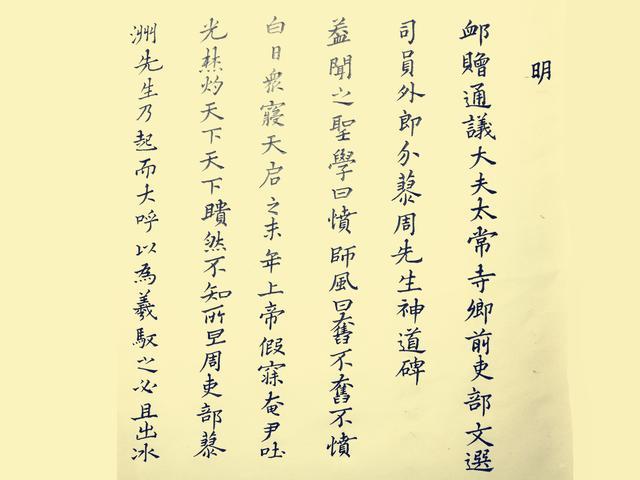 明
卹贈通議大夫太常寺卿前吏部文選
司員外郎蓼周先生神道碑
葢聞之聖學曰憤師風曰奮不奮不憤
白日衆寢天启之末年上帝假寐奄尹吐
光焚灼天下天下瞶然不知所周吏部蓼
洲先生乃起而大呼以為羲馭之必且出冰